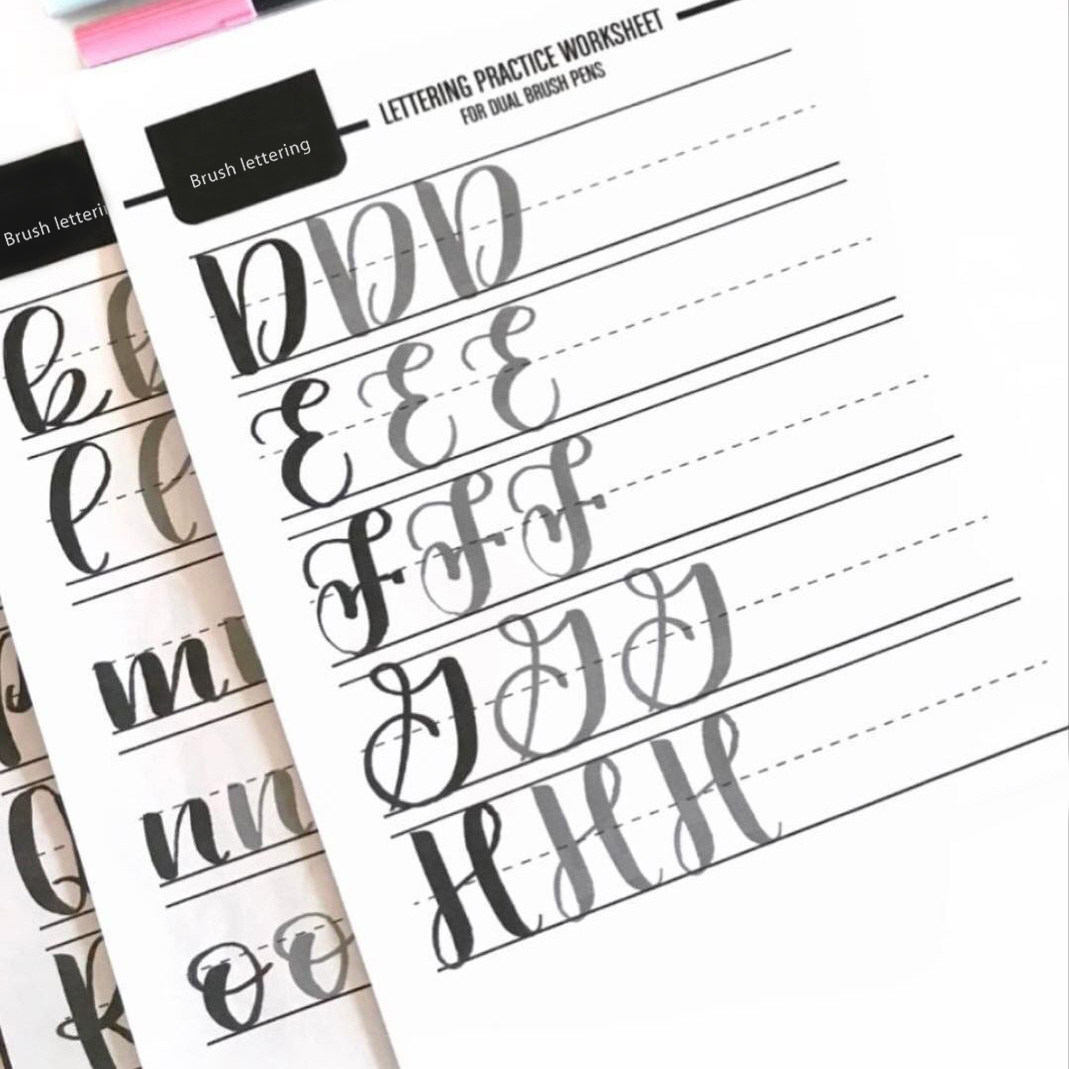 LETTERING PRACTICE WORKSHEET
FOR DUAL BRUSH PENS
Brush lettering
D D D
E E E
F F F
G G G
H H H
Brush letteri
l
m
n n
o o